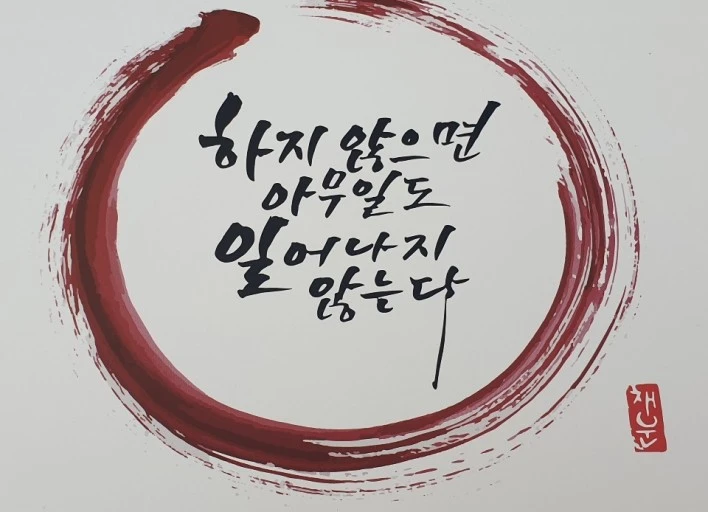 하지 않으면
아무일도
일어나지
않는다